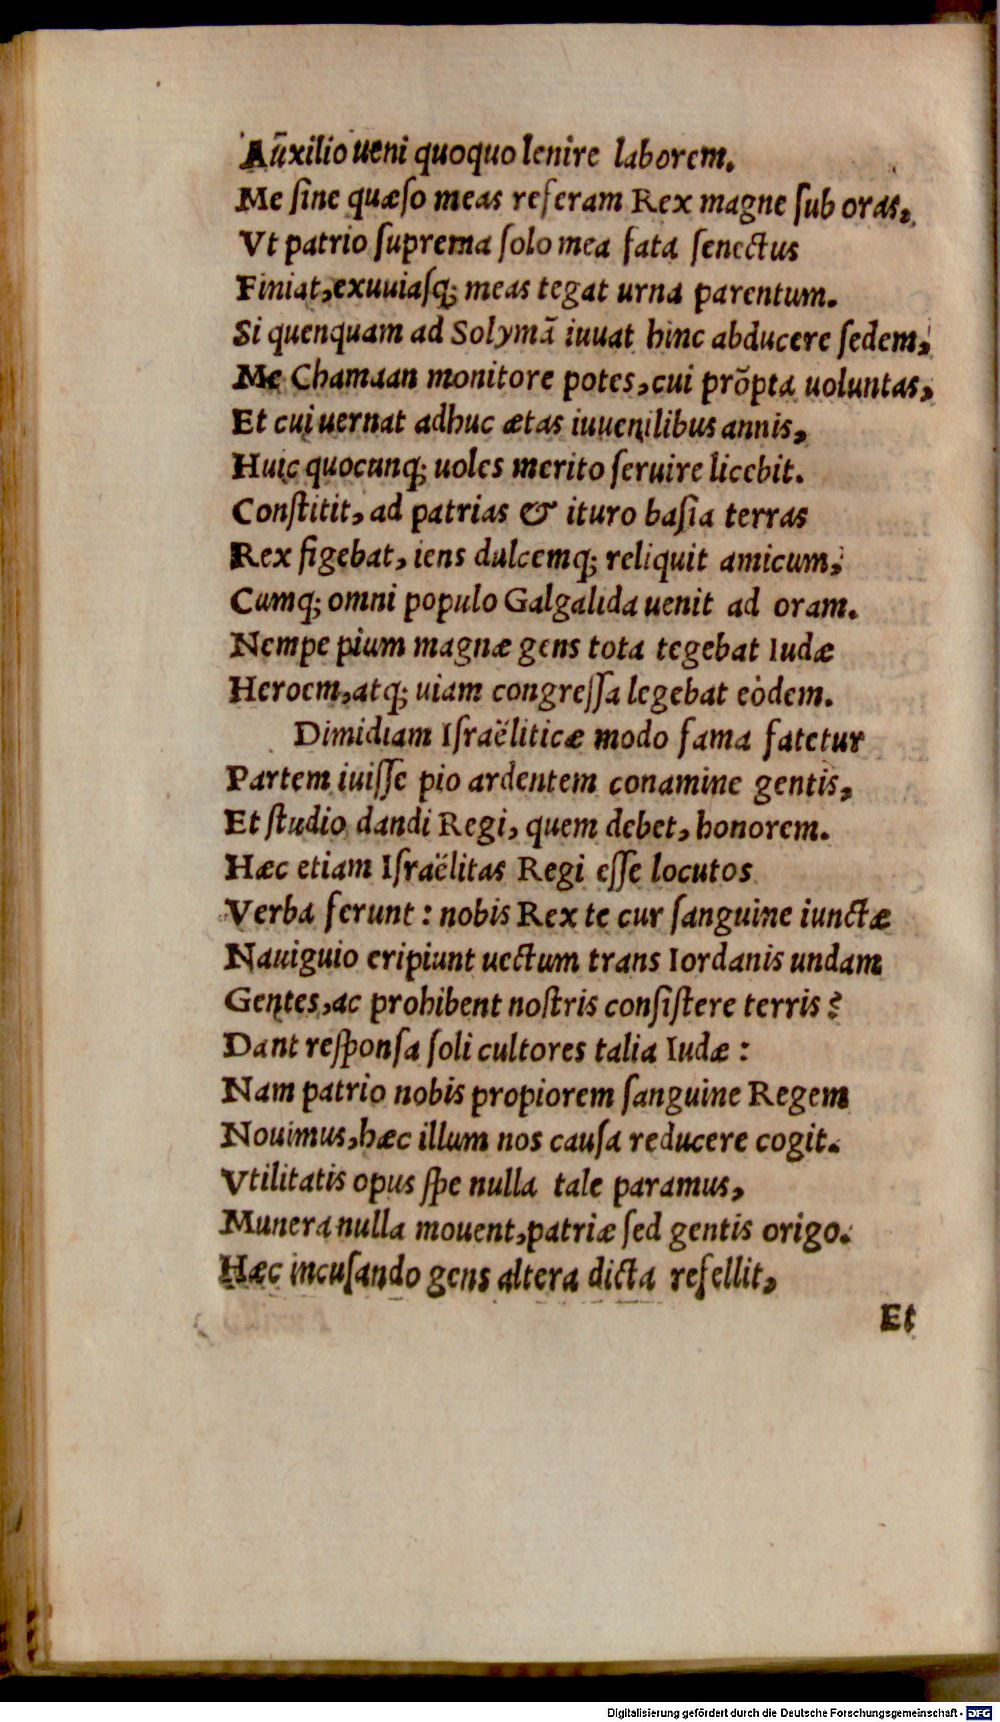 Auxilio ueni quoquo lenire laborem.
Me ſine quæſo meas referam Rex magne ſub oras,
Vt patrio ſuprema ſolo mea fata ſenectus
Finiat, exuuiasq; meas tegat urna parentum.
Si quenquam ad Solymā iuuat hinc abducere ſedem,
Me Chamaan monitore potes, cui prōpta uoluntas,
Et cui uernat adhuc ætas iuuenilibus annis,
Huic quocunq; uoles merito ſeruire licebit.
Conſtitit, ad patrias & ituro baſia terras
Rex figebat, iens dulcemq; reliquit amicum,
Cumq; omni populo Galgalida uenit ad oram.
Nempe pium magnæ gens tota tegebat Iudæ
Heroem, atq; uiam congreſſa legebat eòdem.
Dimidiam Iſraëliticæ modo fama fatetur
Partem iuiſſe pio ardentem conamine gentis,
Et ſtudio dandi Regi, quem debet, honorem.
Hæc etiam Iſraëlitas Regi eſſe locutos
Verba ferunt: nobis Rex te cur ſanguine iunctæ
Nauiguio eripiunt uectum trans Iordanis undam
Gentes, ac prohibent noſtris conſiſtere terris?
Dant reſponſa ſoli cultores talia Iudæ:
Nam patrio nobis propiorem ſanguine Regem
Nouimus, hæc illum nos cauſa reducere cogit.
Vtilitatis opus ſpe nulla tale paramus,
Munera nulla mouent, patriæ ſed gentis origo.
Hæc incuſando gens altera dicta refellit,
Et
Digitalisierung gefördert durch die Deutsche Forschungsgemeinschaft - DFG